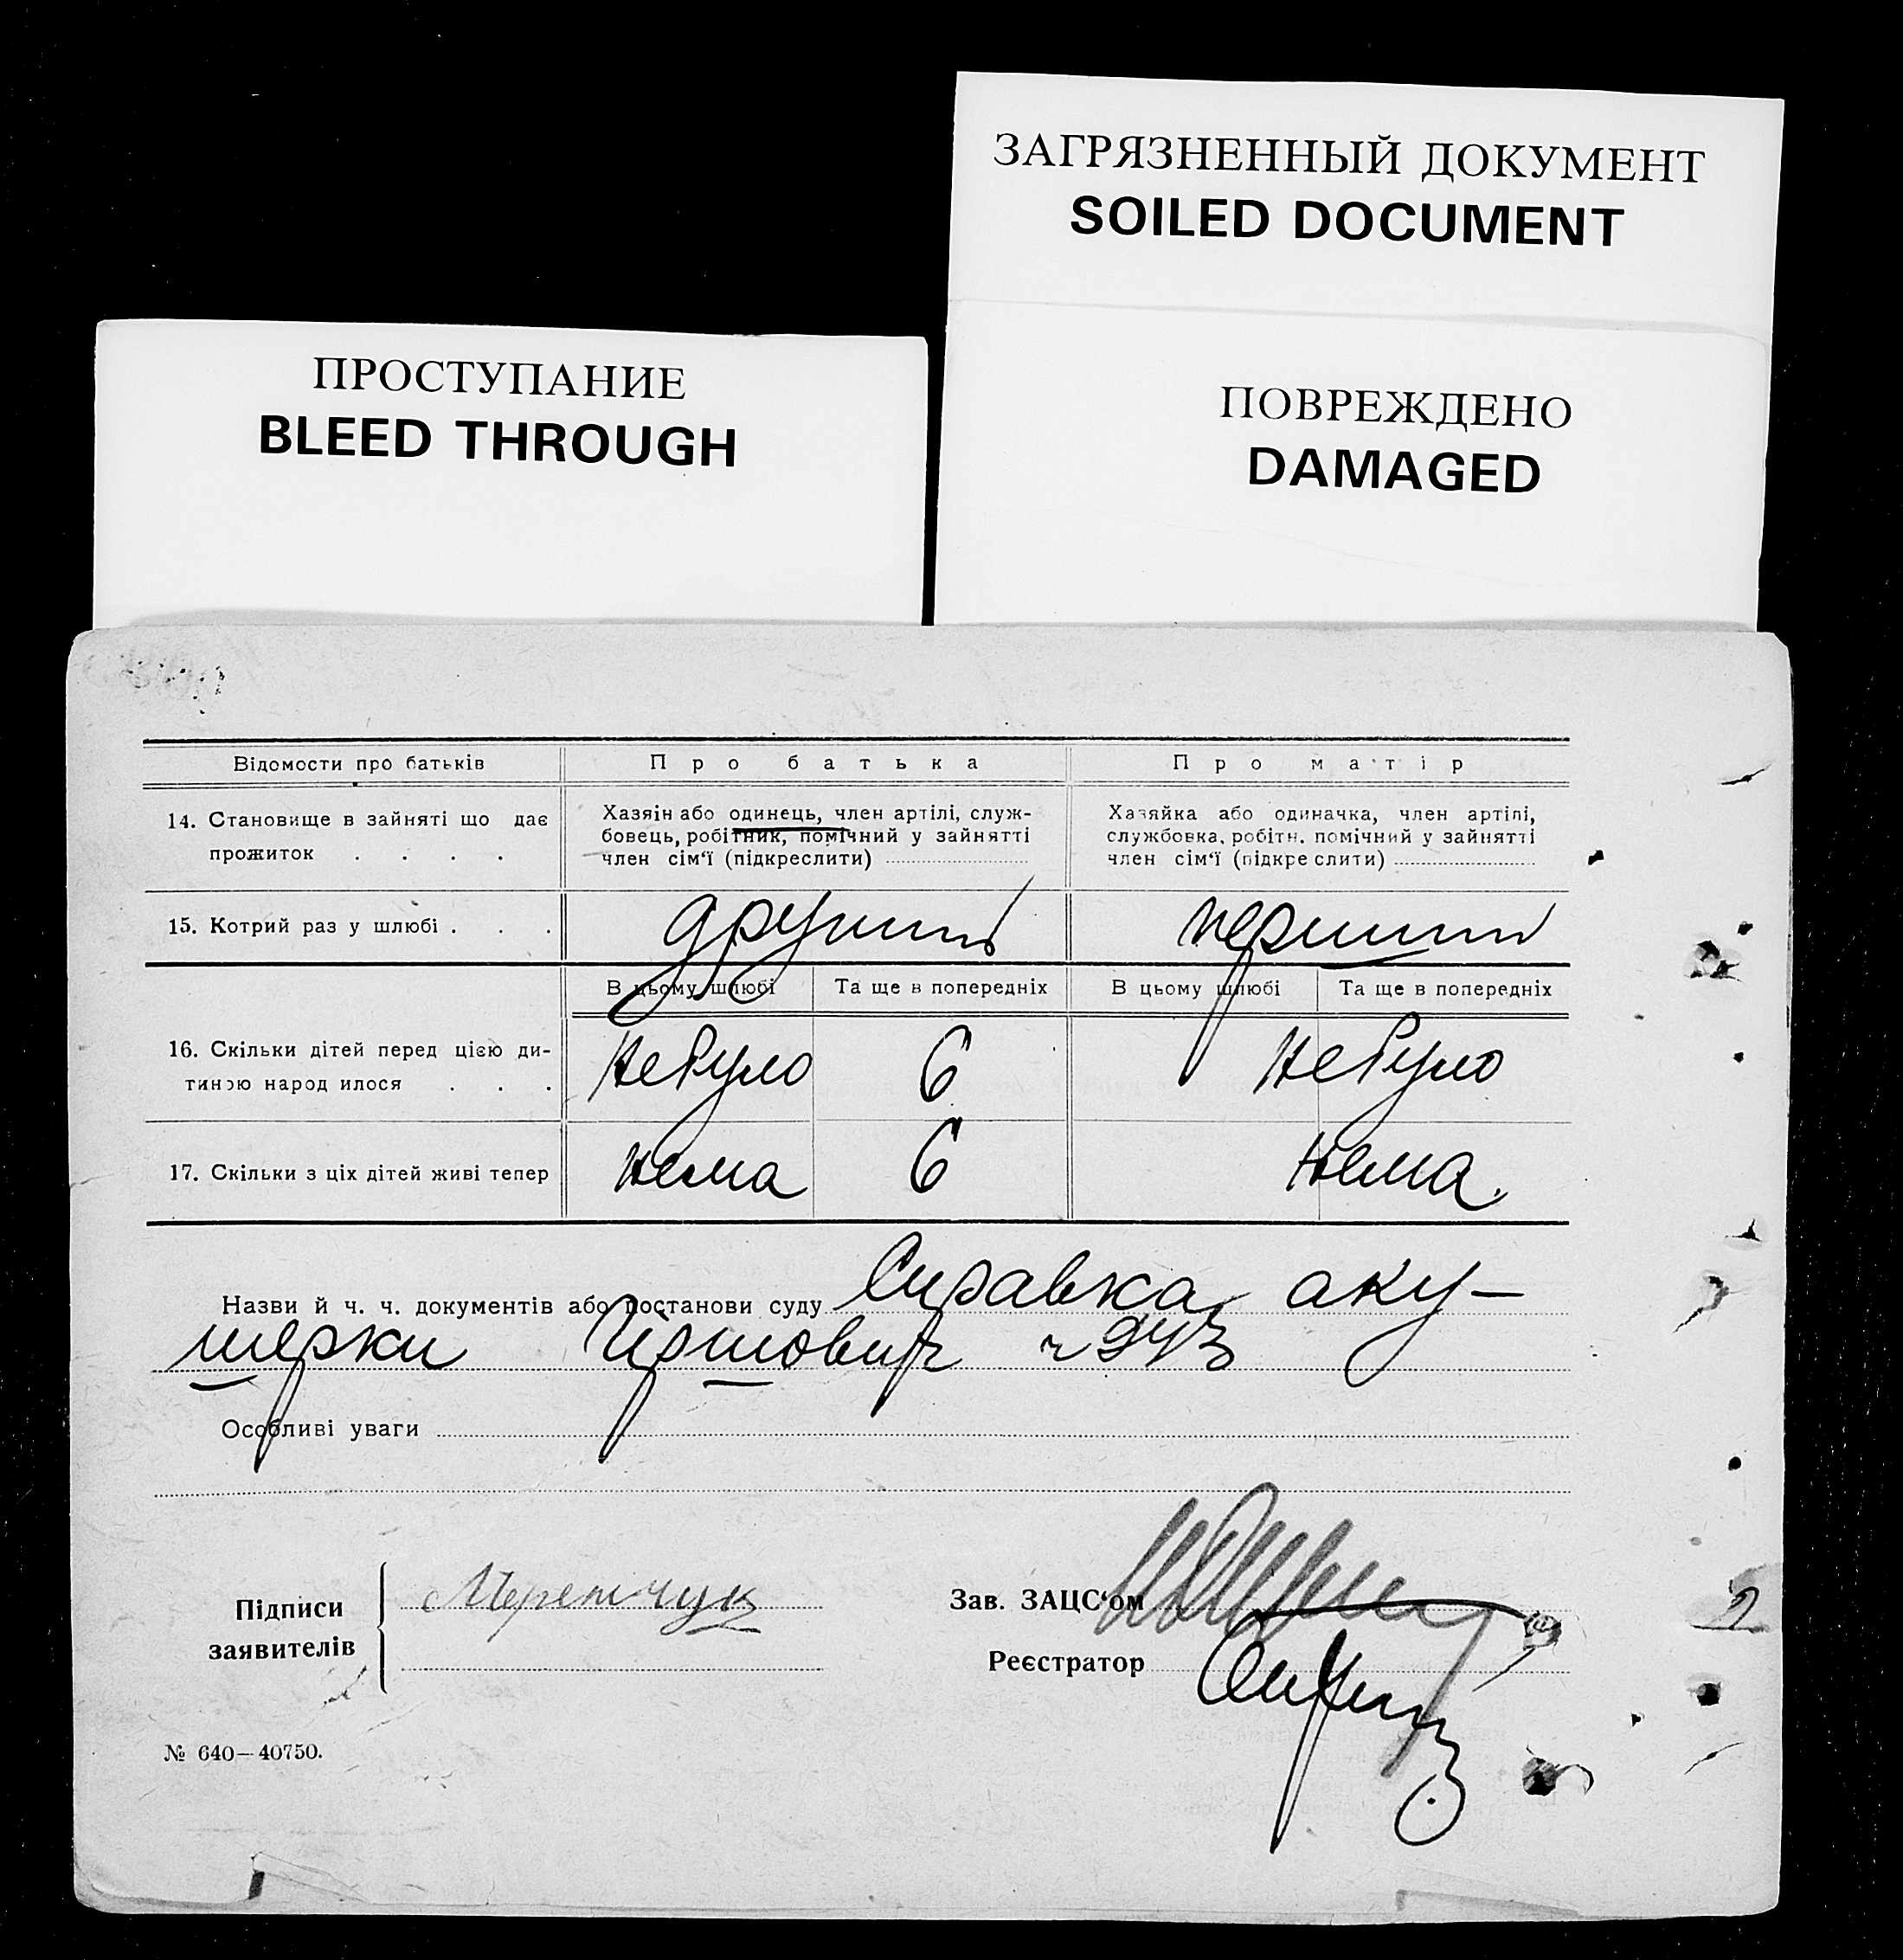 ЗАГРЯЗНЕННЫЙ ДОКУМЕНТ
SOILED DOCUMENT
ПРОСТУПАНИЕ
BLEED THROUGH
ПОВРЕЖДЕНО
DAMAGED
Відомости про батьків
Про батька
Про матір
14. Становище в зайняті що дає
прожиток . . . .
Хазяін або одинець, член артілі, служ-
бовець, робітник, помічний у зайнятті
член сім'ї (підкреслити)
Хазяйка або одиначка, член артілі,
службовка, робітн. помічний у зайнятті
член сім'ї (підкреслити)
15. Котрий раз у шлюбі . . .
другий
перший
В цьому шлюбі
Та ще в попередніх
В цьому шлюбі
Та ще в попередніх
16. Скільки дітей перед цією ди-
тиною народилося . . .
не було
6
не було
17. Скільки з ціх дітей живі тепер
нема
6
нема.
Назви й ч. ч. документів або постанови суду Справка аку-
шерки ч
Особливі уваги
Підписи
заявителів
Зав. ЗАЦС'ом
Реєстратор
№ 640—40750.